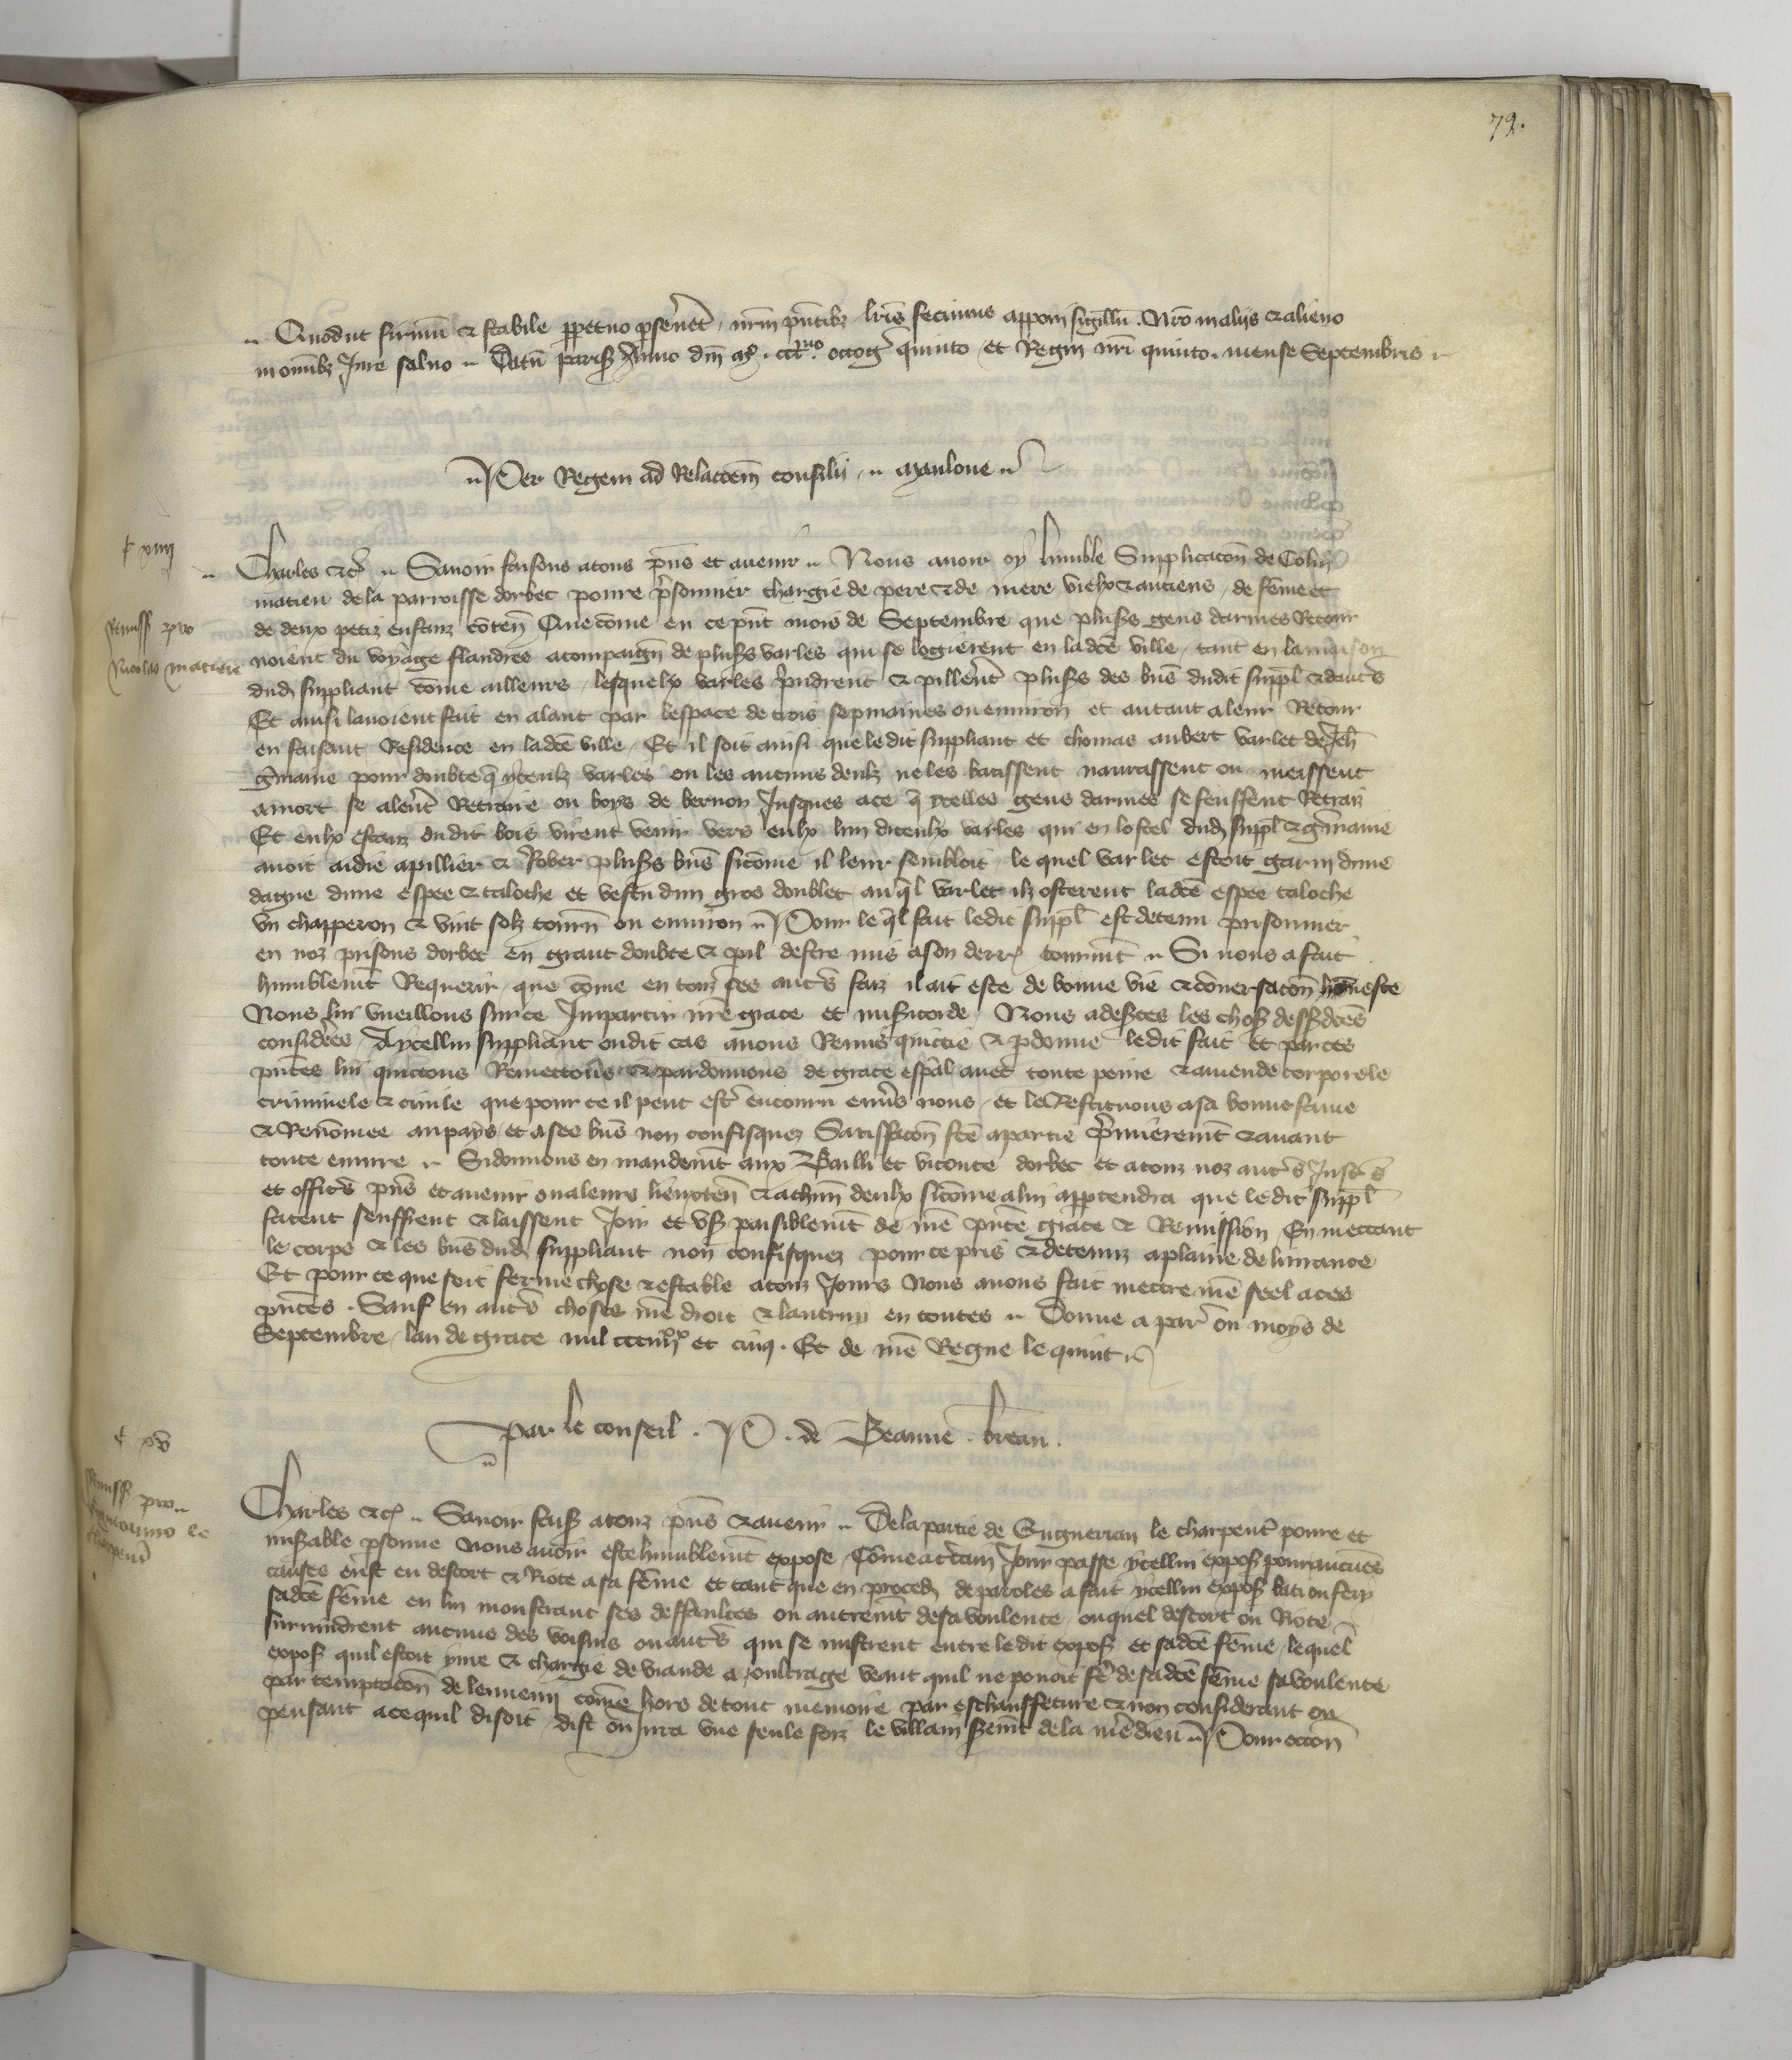 79.
Quod ut firmu & stabile ppetuo pseuet, nrm pntibz lris fecimus apponi sigillu. Nro in aliis & alieno
in omibz Jure saluo Datu paris Anno dni mo. ccc.mo octog quinto et Regni nri quinto. mense Septembris
Per Regem ad Relacoem consilii. manloue
xiiij
Charles &c Sauoir faisons atous pns et auenir Nous auoir oy lumble Supplicacon de Colin
matieu de la parroisse dorbec poure psonnier chargie de pere & de mere vielx & anciens, de feme et
de deux petiz enfanz coten Que come en ce pnt mois de Septembre que plusrs gens darmes Retour
Remiss pro
Nicolas matieu
noient du voyage flandres acompaign de plusrs varles qui se logierent en ladce ville, tant en la maison
dud suppliant come ailleurs, lesquelx varles prindrent & pillerent plusrs des bns dudit suppl & dautrs
Et ainsi lauoient fait en alant par lespace de trois sepmaines ou enuiron et autant a leur Retour
en faisant Residence en ladce ville, Et il soit ainsi que ledit suppliant et thomas aubert varlet de Jeh
gmaine pour doubte q yceulx varles ou les aucuns deulx ne les batissent naurassent ou meissent
a mort se alerent Retraire ou boys de bernon Jusques ace q ycelles gens darmes se feussent Retraiz
Et eulx estanz oudit bois virent venir vers eulx lun diceulx varles qui en lostel dud suppl & gmaine
auoit aidie apillier & Rober plusrs bns sicome il leur sembloit, le quel varlet estoit garni dune
dague dune espee & taloche et vestu dun gros doublet auql varlet ilz osterent ladce espee taloche
vn chapperon & vint solz tourn ou enuiron Pour le ql fait ledit suppl est detenu prisonnier
en noz prisons dorbec en grant doubte & pil destre mis a son derr tourmt Si nous a fait
humblemt Requerir, que come en touz ses autrs faiz il ait este de bonne vie & conersacon honeste
Nous lui vueillons sur ce Impartir nre grace et misicorde, Nous adecertes les choss dessusdces
considees, Aycellui suppliant oudit cas auons Remis quictie & pdonne ledit fait et par ces
pntes lui quictons Remettons & pardonnons de grace espal auec toute peine & amende corporele
criminele & ciuile que pour ce il peut estre encouru enuers nous, et le Restituons asa bonne fame
& Renomee au pays et ases bns non confisquez Satisfacon fce apartie premieremt & auant
toute euure Si donnons en mandemt aux Bailli et viconte dorbec et atouz noz autrs Justicrs
et officrs pns et auenir ou aleurs lieuxten & achun deulx sicome alui apptendra que ledit suppl
facent seuffrent & laissent Joir et usr paisiblemt de nre pnte grace & Remission, En mettant
le corps & les bns dud suppliant non confisquez pour ce pris & detenuz aplaine deliurance
Et pour ce que soit ferme chose & estable atouz Jours Nous auons fait mettre nre seel aces
pntes. Sauf en autrs choses nre droit & lautruy en toutes Donne a par ou moys de
Septembre, lan de grace mil ccciiijxx et cinq. Et de nre Regne le quint
Par le conseil. P. de Beaune. brean.
xv
Charles &c Sauoir faiss atouz pns & auenir De la partie de Enguerran le charpentr poure et
Remiss pro
le
charpentr
misable psonne Nous auoir este humblemt expose, Come a certain Jour passe ycellui exposs pour aucunes
causes eust eu descort & Riote a sa feme et tant que en proced de paroles a fait ycellui exposs bati ou fery
sadce feme en lui monstrant ses deffaultes ou autremt de sa voulente, ouquel descort ou Riote
suruindrent aucuns des voisins ou autrs qui se mistrent entre ledit exposs et sadce feme, lequel
exposs quil estoit yure & chargie de viande a oultrage veant quil ne pouoit fe de sadce feme sa voulente
par temptacon de lennemy come hors de tout memoire par eschauffeture & non considerant ou
pensant ace quil disoit, dist ou Jura vne seule foiz le villain sermt de la mere dieu Pour occon